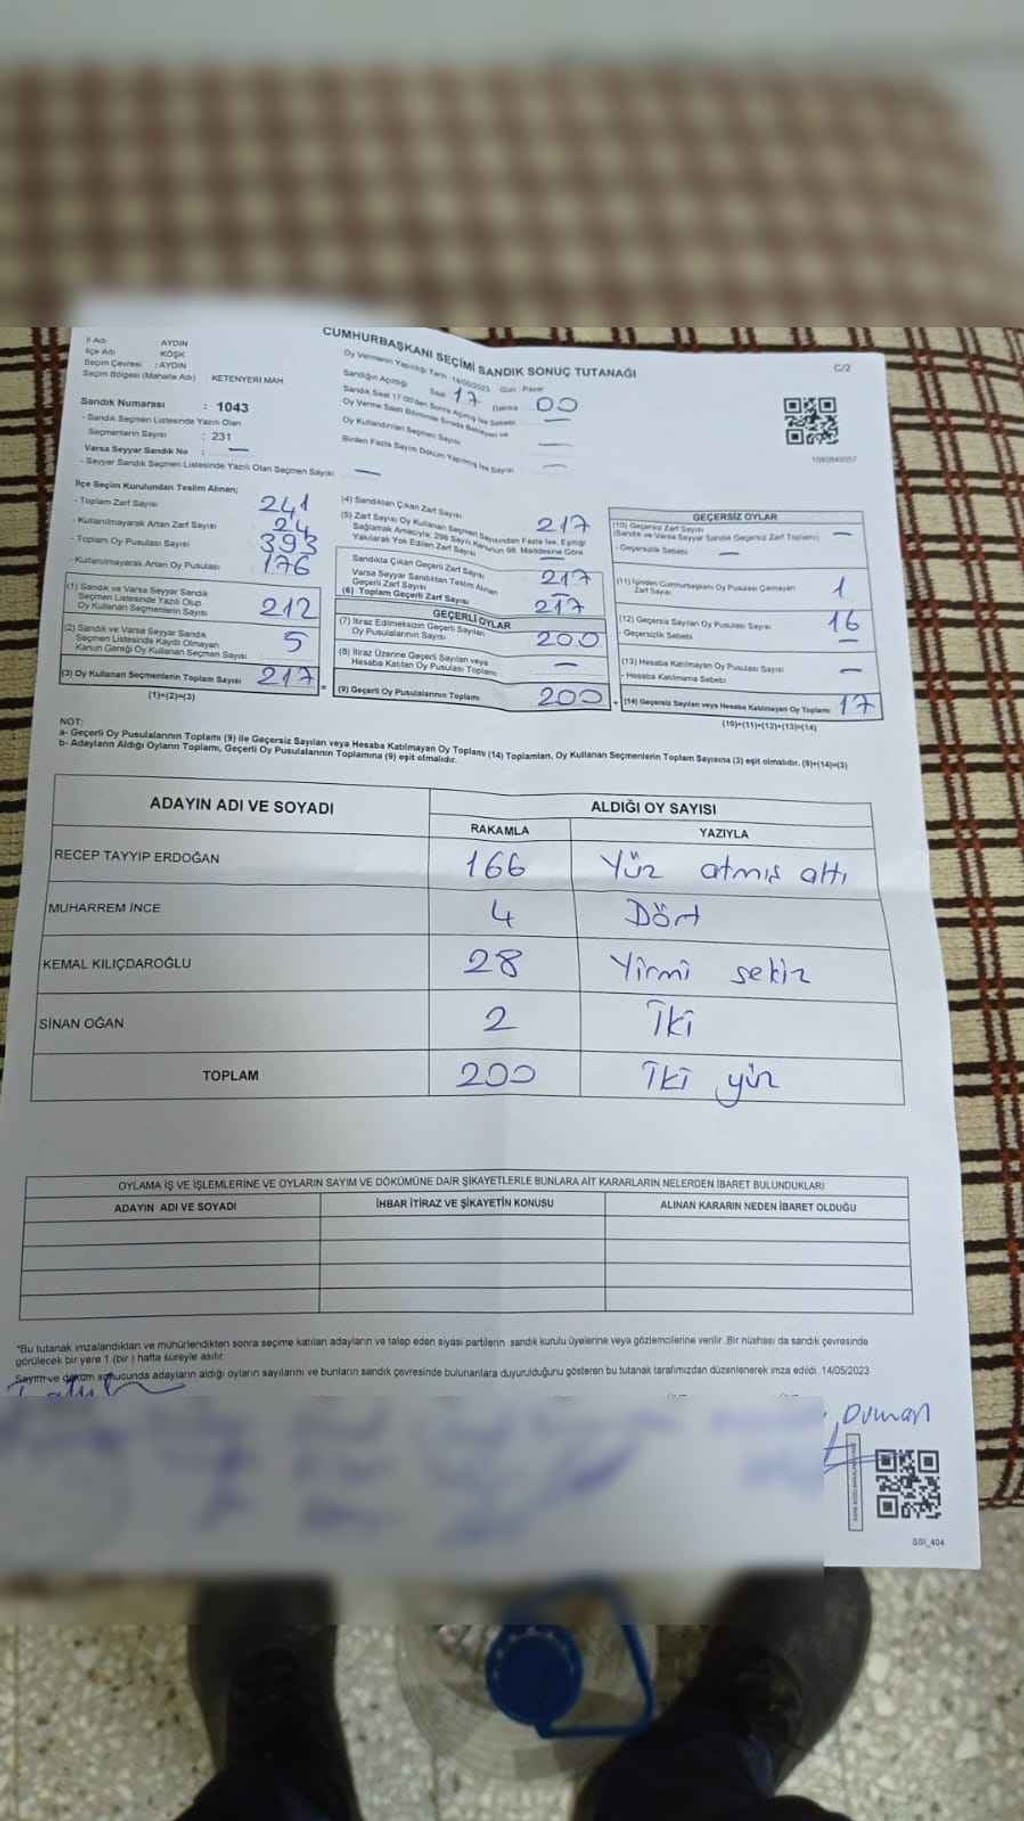 CUMHURBAŞKANI SEÇİMİ SANDIK SONUÇ TUTANAĞI
C/2
İl Adı : AYDIN
İlçe Adı : KÖŞK
Seçim Çevresi : AYDIN
Seçim Bölgesi (Mahalle Adı) KETENYERİ MAH
Sandık Numarası : 1043
- Sandık Seçmen Listesinde Yazılı Olan
Seçmenlerin Sayısı : 231
Varsa Seyyar Sandık No : —
- Seyyar Sandık Seçmen Listesinde Yazılı Olan Seçmen Sayısı —
Oy Vermenin Yapıldığı Tarih 14/05/2023 Gün Pazar
Sandığın Açıldığı Saat 17 Dakika 00
Oy Kullandırılan Seçmen Sayısı —
Birden Fazla Sayım Döküm Yapılmış İse Sayısı —
İlçe Seçim Kurulundan Teslim Alınan;
- Toplam Zarf Sayısı 241
- Kullanılmayarak Artan Zarf Sayısı 24
- Toplam Oy Pusulası Sayısı 393
- Kullanılmayarak Artan Oy Pusulası 176
(1) Sandık ve Varsa Seyyar Sandık
Seçmen Listesinde Yazılı Olup
Oy Kullanan Seçmenlerin Sayısı 212
(2) Sandık ve Varsa Seyyar Sandık
Seçmen Listesinde Kayıtlı Olmayan
Kanun Gereği Oy Kullanan Seçmen Sayısı 5
(3) Oy Kullanan Seçmenlerin Toplam Sayısı 217
(1)+(2)=(3)
(4) Sandıktan Çıkan Zarf Sayısı 217
(5) Zarf Sayısı Oy Kullanan Seçmen Sayısından Fazla İse, Eşitliği
Sağlamak Amacıyla; 298 Sayılı Kanunun 98. Maddesine Göre
Yakılarak Yok Edilen Zarf Sayısı —
Sandıkta Çıkan Geçerli Zarf Sayısı 217
Varsa Seyyar Sandıktan Teslim Alınan
Geçerli Zarf Sayısı —
(6) Toplam Geçerli Zarf Sayısı 217
GEÇERLİ OYLAR
(7) İtiraz Edilmeksizin Geçerli Sayılan
Oy Pusulalarının Sayısı 200
(8) İtiraz Üzerine Geçerli Sayılan veya
Hesaba Katılan Oy Pusulası Toplamı —
(9) Geçerli Oy Pusulalarının Toplamı 200
GEÇERSİZ OYLAR
(10) Geçersiz Zarf Sayısı
(Sandık ve Varsa Seyyar Sandık Geçersiz Zarf Toplamı) —
- Geçersizlik Sebebi —
(11) İçinden Cumhurbaşkanı Oy Pusulası Çıkmayan
Zarf Sayısı 1
(12) Geçersiz Sayılan Oy Pusulası Sayısı 16
- Geçersizlik Sebebi —
(13) Hesaba Katılmayan Oy Pusulası Sayısı —
- Hesaba Katılmama Sebebi
(14) Geçersiz Sayılan veya Hesaba Katılmayan Oy Toplamı 17
(10)+(11)+(12)+(13)=(14)
NOT:
a- Geçerli Oy Pusulalarının Toplamı (9) ile Geçersiz Sayılan veya Hesaba Katılmayan Oy Toplamı (14) Toplamları, Oy Kullanan Seçmenlerin Toplam Sayısına (3) eşit olmalıdır. (9)+(14)=(3)
b- Adayların Aldığı Oyların Toplamı, Geçerli Oy Pusulalarının Toplamına (9) eşit olmalıdır.
ADAYIN ADI VE SOYADI ALDIĞI OY SAYISI
RAKAMLA YAZIYLA
RECEP TAYYIP ERDOĞAN 166 Yüz atmış altı
MUHARREM İNCE 4 Dört
KEMAL KILIÇDAROĞLU 28 Yirmi sekiz
SİNAN OĞAN 2 İki
TOPLAM 200 İki yüz
OYLAMA İŞ VE İŞLEMLERİNE VE OYLARIN SAYIM VE DÖKÜMÜNE DAİR ŞİKAYETLERLE BUNLARA AİT KARARLARIN NELERDEN İBARET BULUNDUKLARI
ADAYIN ADI VE SOYADI İHBAR İTİRAZ VE ŞİKAYETİN KONUSU ALINAN KARARIN NEDEN İBARET OLDUĞU
*Bu tutanak imzalandıktan ve mühürlendikten sonra seçime katılan adayların ve talep eden siyasi partilerin sandık kurulu üyelerine veya gözlemcilerine verilir. Bir nüshası da sandık çevresinde
görülecek bir yere 1 (bir) hafta süreyle asılır.
Sayım ve döküm sonucunda adayların aldığı oyların sayılarını ve bunların sandık çevresinde bulunanlara duyurulduğunu gösteren bu tutanak tarafımızdan düzenlenerek imza edildi. 14/05/2023
Duman